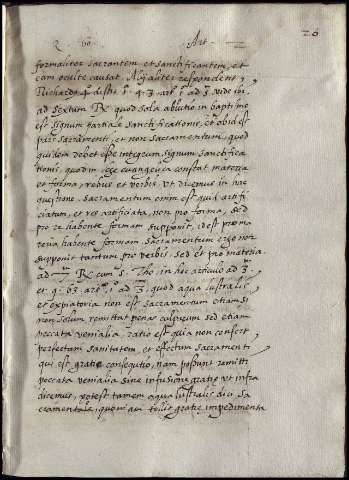 Q. 60. Art.
26
formaliter sacrantem et sanctificantem, et
eam oculte causat. Alij autem respondent,
Richardo 4º distin. 1ª q. 3. art. 1. ad 3. vide ibi,
ad sextum R. quod sola ablutio in baptismo
est signum partiale sanctificationis, et ob id est
pars sacramenti, et non sacramentum, quod
quidem debet esse integrum signum sanctifica
tionis, quod in lege evangelica constat materia
et forma, rebus et verbis ut dicemus in hac
questione. sacramentum enim est quid artifi
ciatum, et res artificiata, non pro forma, sed
pro re habente formam supponit, id est pro ma
teria habente formam sacramentum ergo non
supponit tantum pro verbis, sed et pro materia.
ad R. cum s. Tho. in hoc articulo ad 3.
et q. 63 art. 1. ad 3. quod aqua lustralis,
et expiatoria non est sacramentum etiam si
non solum remittat penas culparum sed etiam
peccata venialia, ratio est quia non confert,
perfectam sanitatem, et effectum sacramenti
qui est gratie consequtio, nam possunt remitti
peccata venialia sine infusione gratie ut infra
dicemus, potest tamen aqua lustralis dici sa
cramentale, quoniam tollit gratie impedimenta